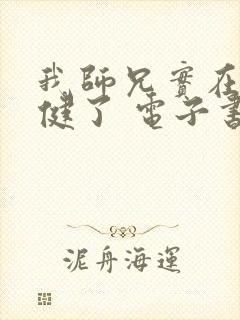 我師兄實在
健了 電子書
泥舟海運